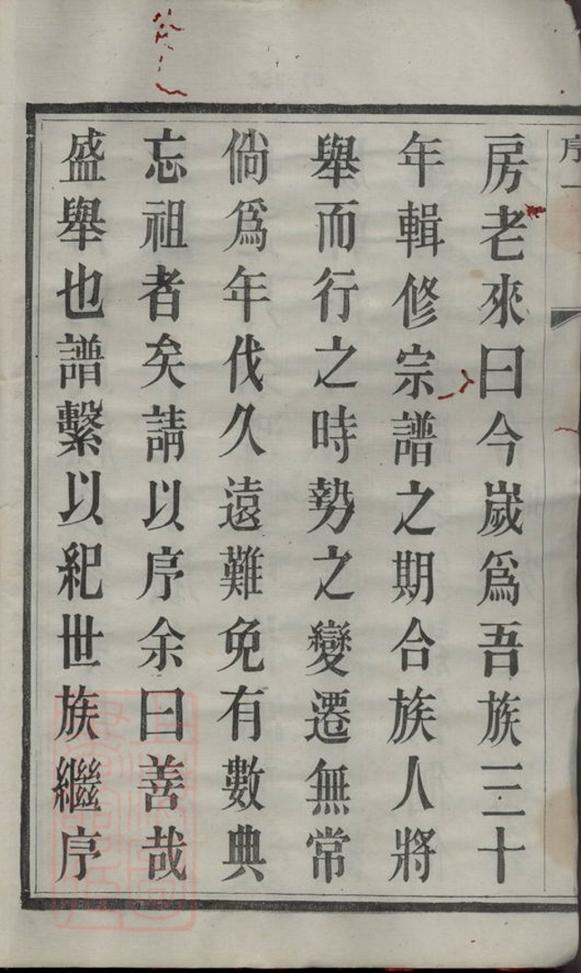 序一
房老來曰今歲爲吾族三十
年輯修宗譜之期合族人將
舉而行之時勢之變遷無常
倘爲年伐久遠難免有數典
忘祖者矣請以序余曰善哉
盛舉也譜繫以紀世族繼序